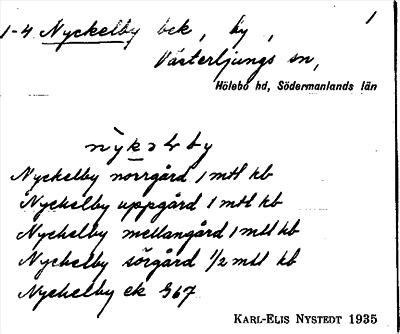 1
1-4 Nyckelby bek, by,
Västerljungs sn,
Hölebo hd, Södermanlands län
Nyckelby norrgård 1 mtl kb
Nyckelby uppgård 1 mtl kb
Nyckelby mellangård 1 mtl kb
Nyckelby sörgård 1/2 mtl kb
Nyckelby ek 967
KARL-ELIS NYSTEDT 1935